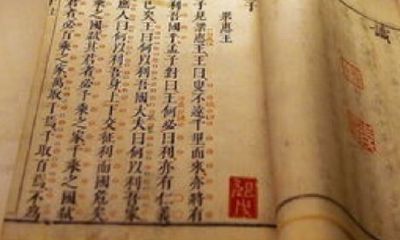 識
子
梁惠王
子見梁惠王王曰叟不遠千里而來亦將有
利吾國乎孟子對曰王何必曰利亦有仁義
已矣王曰何以利吾國大夫曰何以利吾家
庶人曰何以利吾身上下交征利而國危矣
乘之國弑其君者必千乘之家千乘之國弑
君者必百乘之家萬取千焉千取百焉不爲